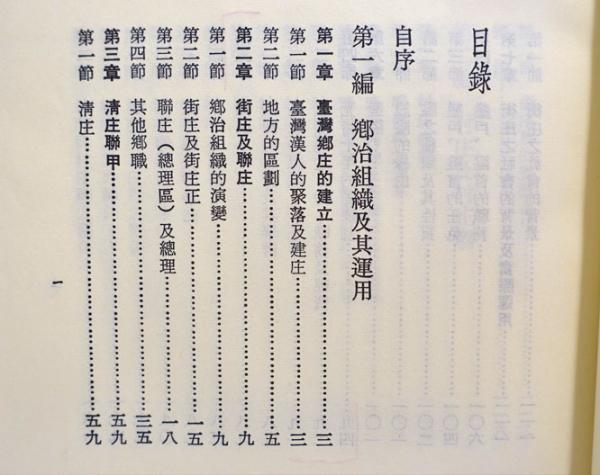 目錄
自序
第一編 鄉治組織及其運用
第一章 臺灣鄉庄的建立⋯⋯三
第一節 臺灣漢人的聚落及建庄⋯⋯三
第二節 地方的區劃⋯⋯五
第二章 街庄及聯庄⋯⋯九
第一節 鄉治組織的演變⋯⋯九
第二節 街庄及街庄正⋯⋯一五
第三節 聯庄（總理區）及總理⋯⋯一八
第四節 其他鄉職⋯⋯三五
第三章 清庄聯甲⋯⋯五九
第一節 清庄⋯⋯五九
一